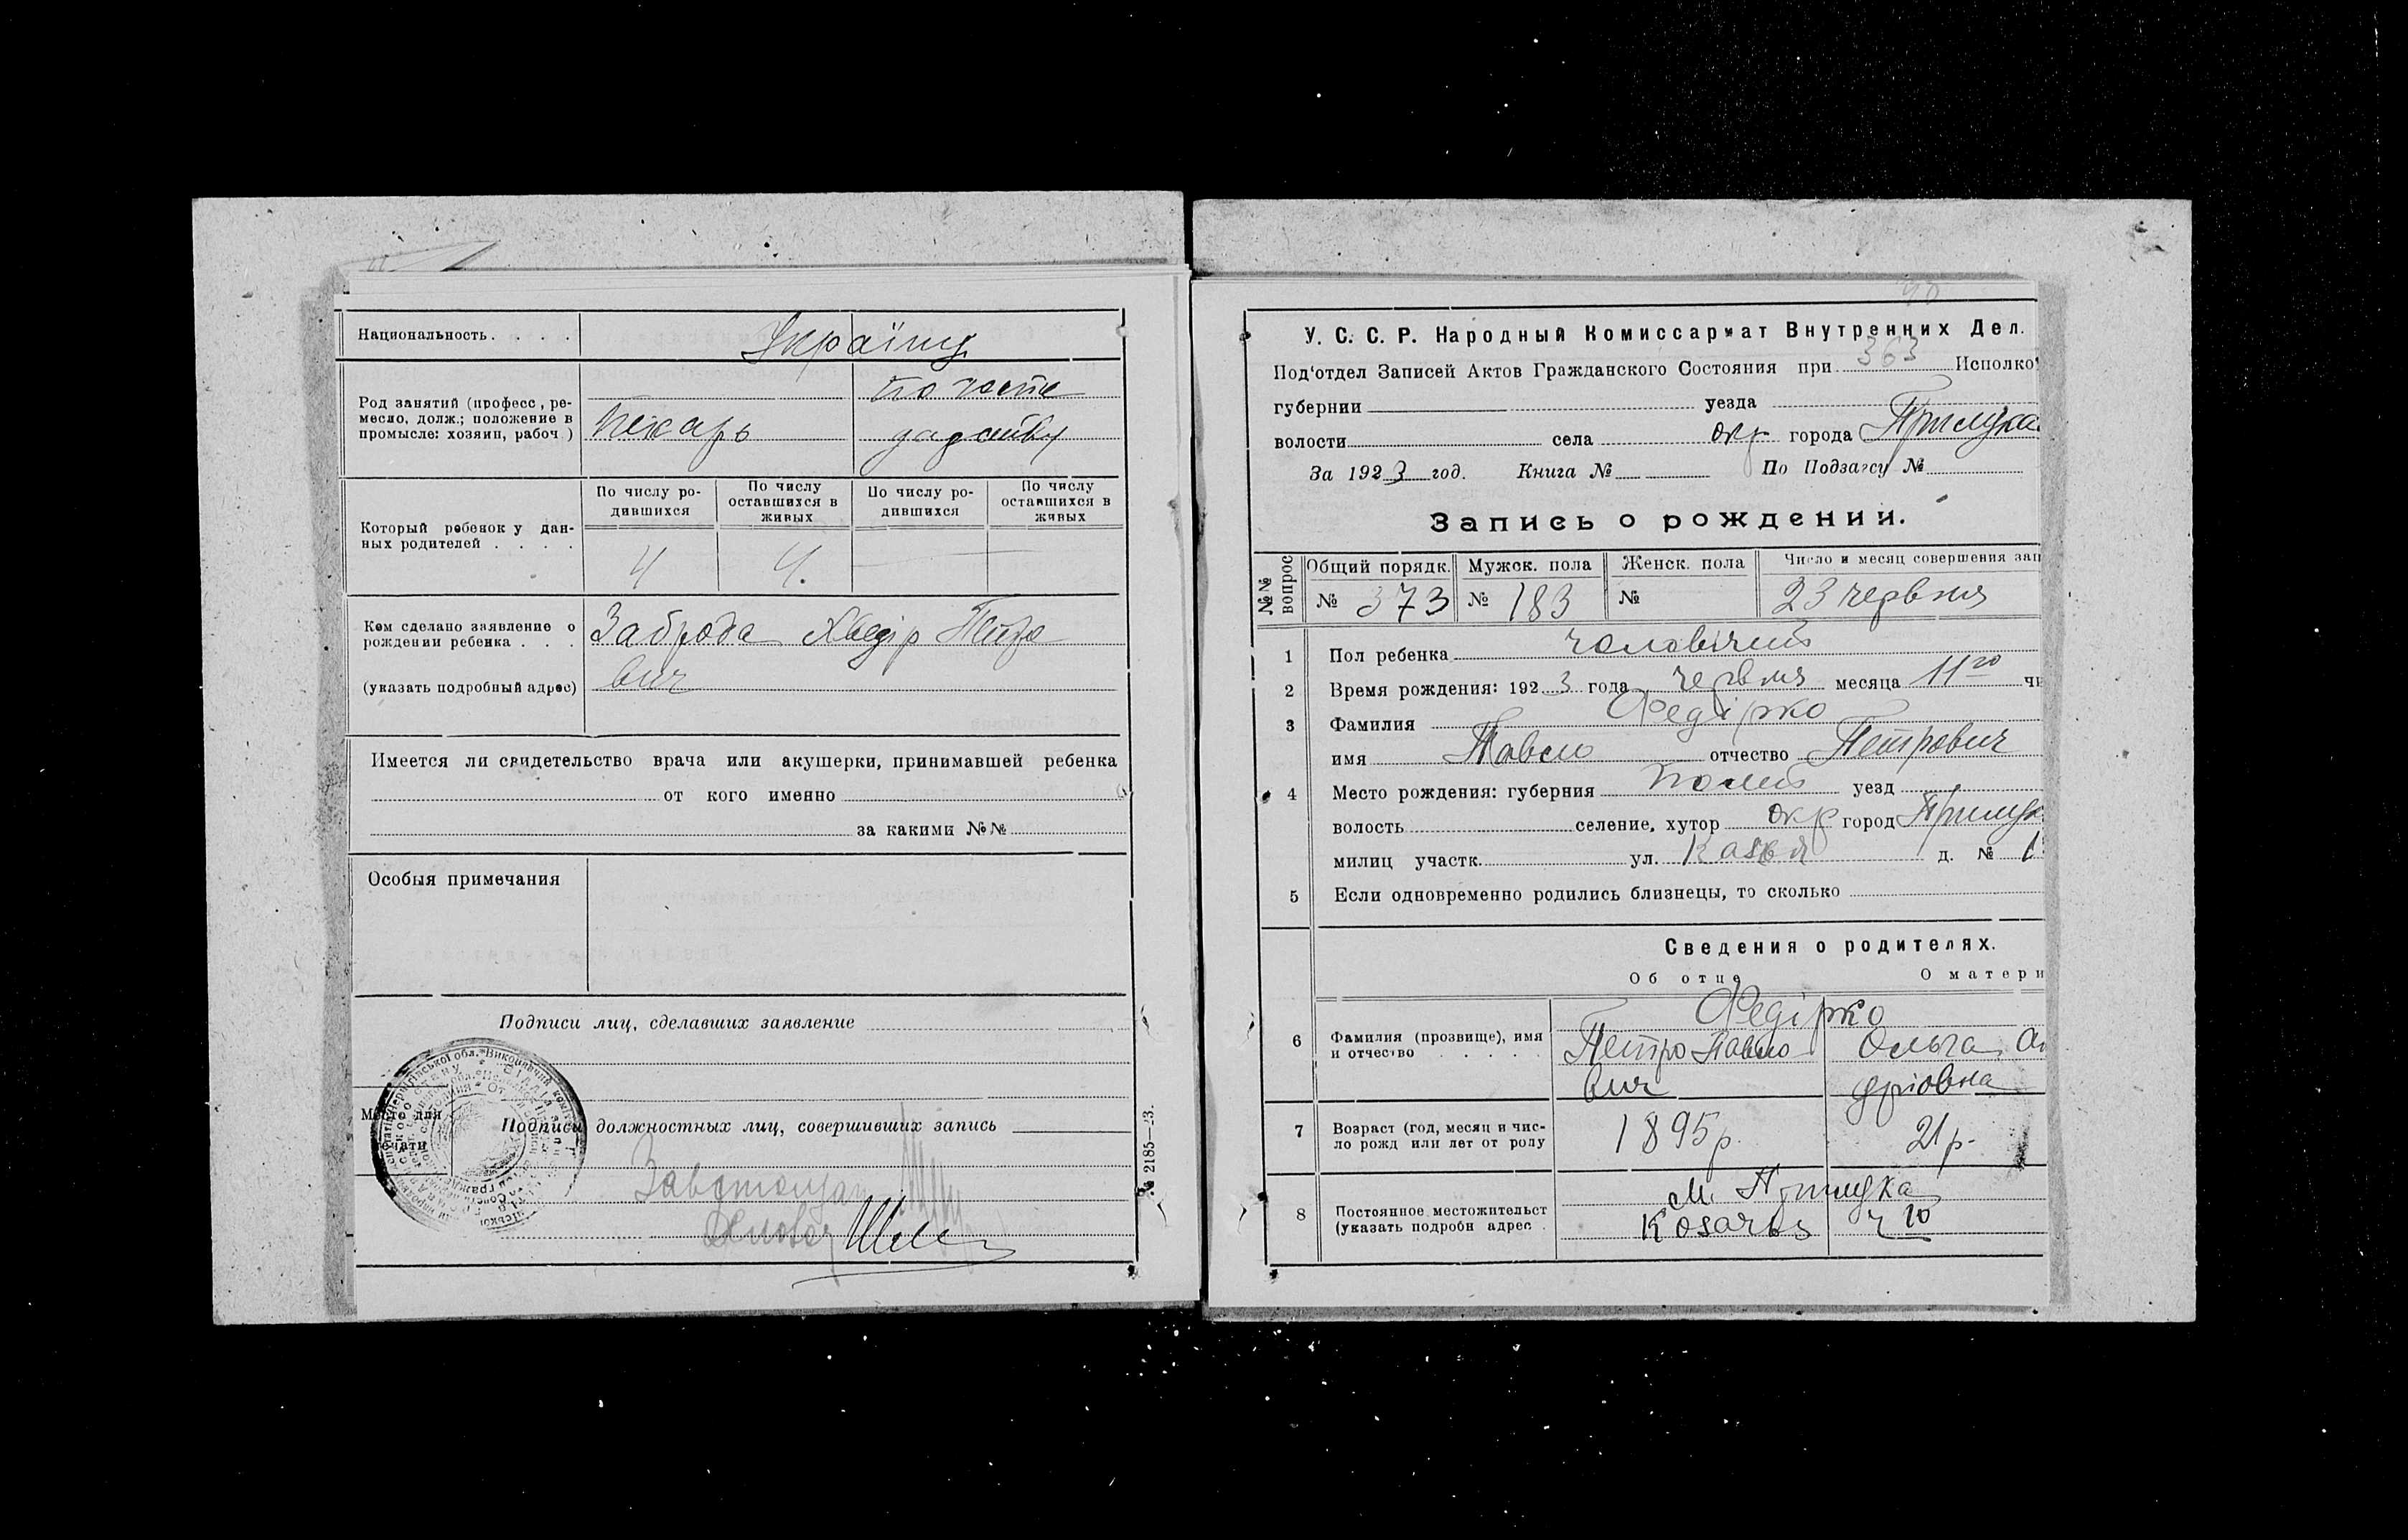 Национальность. . . . .
Українці
Род занятий (професс, ре-
месло, долж.; положение в
промысле: хозяин, рабоч.)
Пекарь
по части
Который ребенок у дан-
ных родителей . . . .
По числу ро-
дившихся
По числу
оставшихся в
живых
По числу ро-
дившихся
По числу
оставшихся в
живых
4
4.
Кем сделано заявление о
рождении ребенка . . .
(указать подробный адрес)
Заброда Хведір Петро
вич
Имеется ли свидетельство врача или акушерки, принимавшей ребенка
от кого именно
за какими №№
Особыя примечания
Подписи лиц, сделавших заявление
Место для
печати
Подписи должностных лиц, совершивших запись
№ 2185—23.
У. С. С. Р. Народный Комиссариат Внутренних Дел.
Под'отдел Записей Актов Гражданского Состояния при 363 Исполко
губернии уезда
волости села окр города Прилука
За 1923 год. Книга № По Подзагсу №
Запись о рождении.
№№
вопрос
Общий порядк.
№ 373
Мужск. пола
№ 183
Женск. пола
№
Число и месяц совершения зап
23 червня
1 Пол ребенка чоловічий
2 Время рождения: 1923 года червня месяца 11го чи
3 Фамилия Федірко
имя Павло отчество Петрович
4 Место рождения: губерния Полт уезд
волость селение, хутор окр город Прилук
милиц участк. ул. д. № 1
5 Если одновременно родились близнецы, то сколько
Сведения о родителях.
Об отце О матери
6 Фамилия (прозвище), имя
и отчество . . . . .
Федірко
Петро Павло
вич
Ольга Ан
дріовна
7 Возраст (год, месяц и чис-
ло рожд или лет от роду
1895 р.
21 р.
8 Постоянное местожительст
(указать подробн адрес .
М. Прилука
Козача ч 10